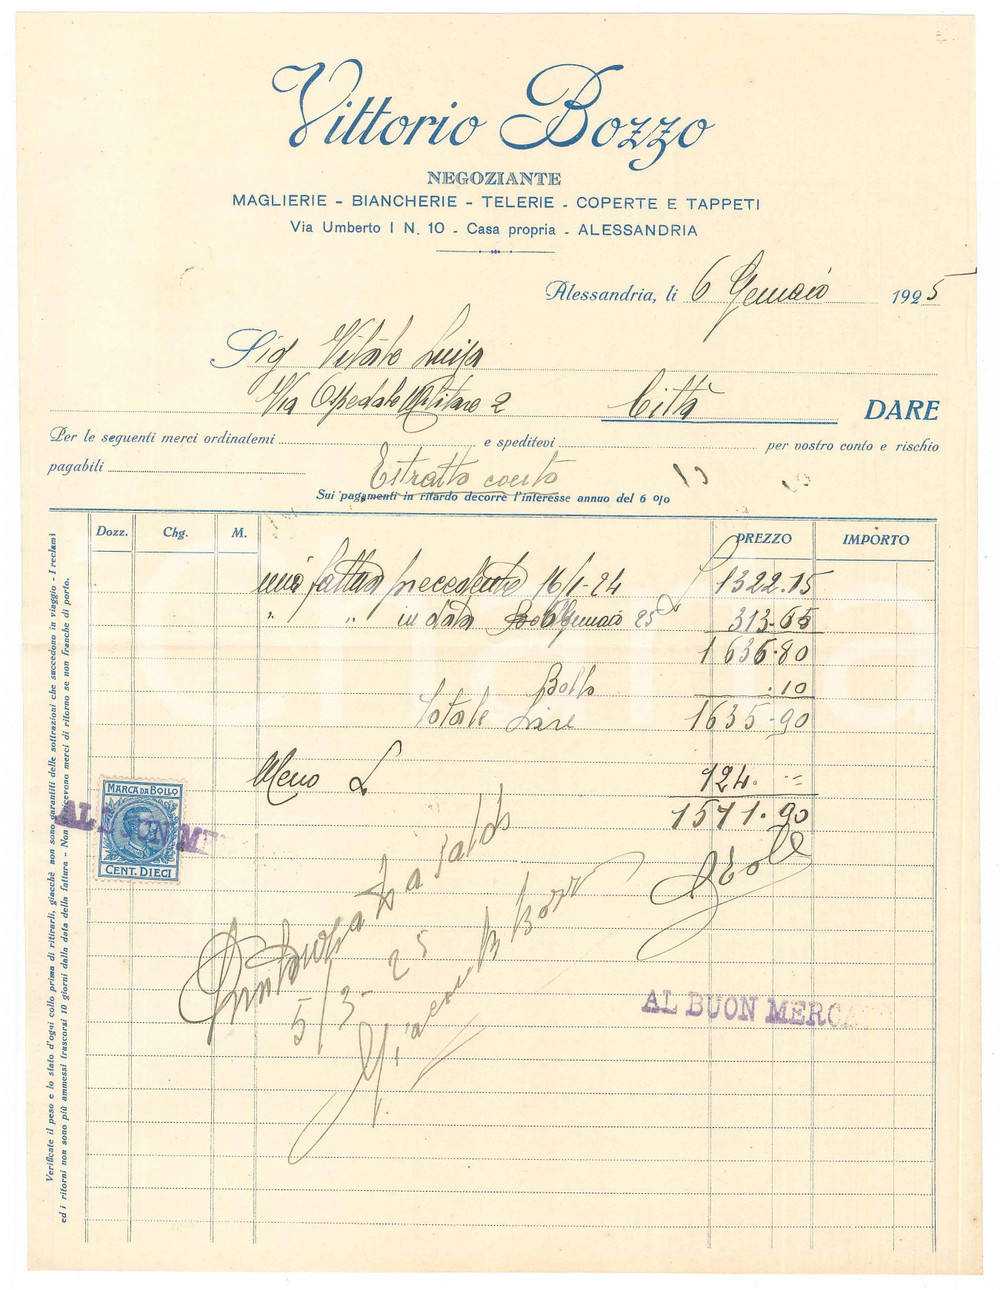 Vittorio Bozzo
NEGOZIANTE
MAGLIERIE - BIANCHERIE - TELERIE - COPERTE E TAPPETI
Via Umberto I N. 10 - Casa propria - ALESSANDRIA
Alessandria, li 6 Gennaio 1925
Sig Vitale Luisa
Via Ospedale Militare 2 Città DARE
Per le seguenti merci ordinatemi e speditevi per vostro conto e rischio
pagabili Estratto conto
Sui pagamenti in ritardo decorre l'interesse annuo del 6 %
Dozz. Chg. M. PREZZO IMPORTO
mia fattura precedente 16/1-24 £ 1322.15
" " in data 6 Gennaio 25 313.65
1635.80
Bollo .10
Totale Lire 1635.90
Meno £ 124. =
1511.90
MARCA DA BOLLO
CENT. DIECI
AL BUON ME
a Saldo
5/3-25
Bozzo
AL BUON MERCA
Verificate il peso e lo stato d'ogni collo prima di ritirarli, giacchè non sono garantiti delle sottrazioni che succedono in viaggio - I reclami
ed i ritorni non sono più ammessi trascorsi 10 giorni dalla data della fattura - Non si ricevono merci di ritorno se non franche di porto.